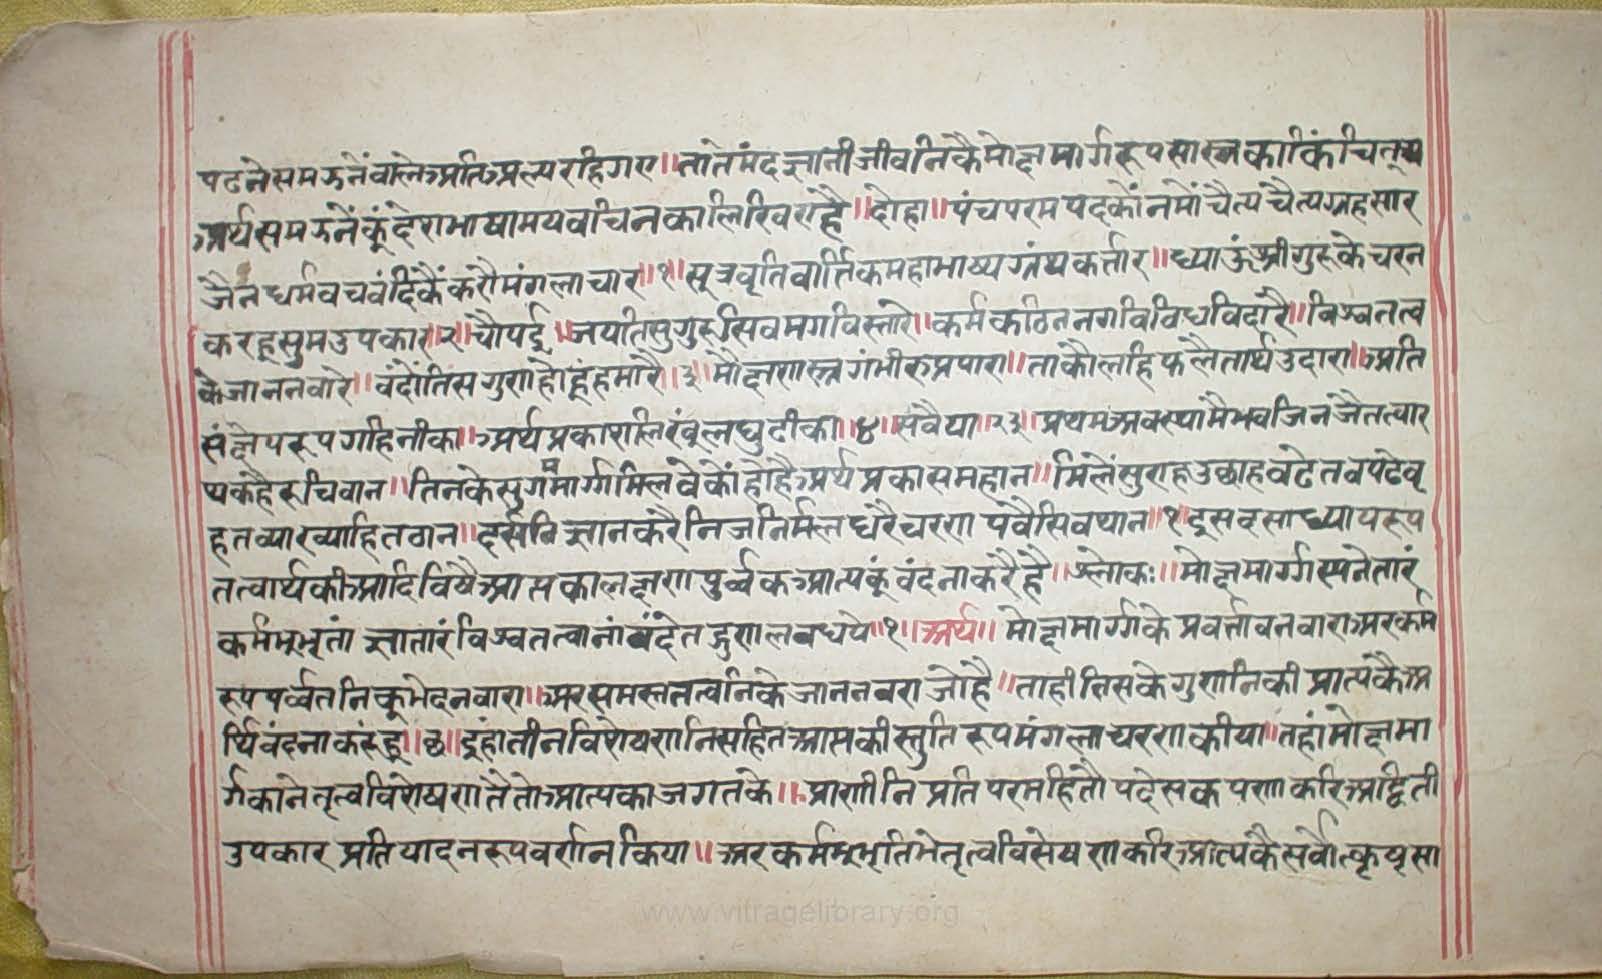 पढनेसमऊनेंवालेअतिअल्परहिगए॥तातेमंदज्ञानीजीवनिकैमोक्षमार्गरूपसास्त्रकाकिंचित्
अर्थसमऊनेंकूंदेशभाषामयवाचिनकालिखिएहै॥दोहा॥पंचपरमपदकौंनमौंचैत्यचैत्यग्रहसार
जैनधर्मवचवंदिकैंकरौमंगलाचार॥१॥सूत्रवृतिवार्तिकमहाभाष्यग्नंथकर्त्तार॥ध्याऊंश्रीगुरुकेचरन
करहूसुमउपकार॥२॥चौपई॥जयतिसुगुरुसिवमगविस्तारे॥कर्मकठिननगविविधविदारै॥विश्वतत्व
केजाननवारे॥वंदोंतिसगुणहोहूंहमारै॥३॥मौक्षशास्त्रगंभीरुअपारा॥ताकौलहिफलैतार्थउदारा॥अति
संक्षेपरूपगहिनीका॥अर्थप्रकाशलिखूंलघुटीका॥४॥सवैया॥२३॥प्रथमअवस्थामैभवजिनजैतत्वार
थकहैरुचिवान॥तिनकेसुगममार्ग्गमिलवेकोंहोहैअर्थप्रकासमहान॥मिलेंसुराहउछाहवढेतवपढेवृ
हतव्याख्याहितठान॥दर्सनिज्ञानकरैनिजनिर्मलधरैचरणपवैसिवथान॥१॥दूसदसाध्यायरूप
तत्वार्थकीआदिविषैआप्तकालक्षणपुर्व्वकआप्तकूंवंदनाकरैहै॥श्लोकः॥मोक्षमार्ग्गस्यनेतारं
कर्मभूभृतां ज्ञातारंविश्वतत्वानांवंदेतद्गुणलवधये॥१॥अर्थ॥मोक्षमार्ग्गके प्रवर्त्तावनवाराअरकर्म
रूपपर्व्वतनिकूभेदनवारा॥अरसमस्ततत्वनिकेजाननवराजोहै॥ताहीतिसकेगुणनिकी प्राप्तकैअ
र्थिवंदनाकरूंहू॥छ॥इहांतीनविशेषणनिसहितआप्तकीस्तुतिरूपमंगलाचरणकीया॥तहांमोक्षमा
र्गकानेतृत्वविशेषणतैतोआप्तकाजगतके॥प्राणीनि प्रति परमहितौपदेसकपणाकरिअद्विती
उपकार प्रतिपादनरूपवर्णनकिया॥अरकर्मभूभृतिभेतृत्वविसेषणकरिआप्तकैसर्वोत्कृष्टसा
www.vitragelibrary.org